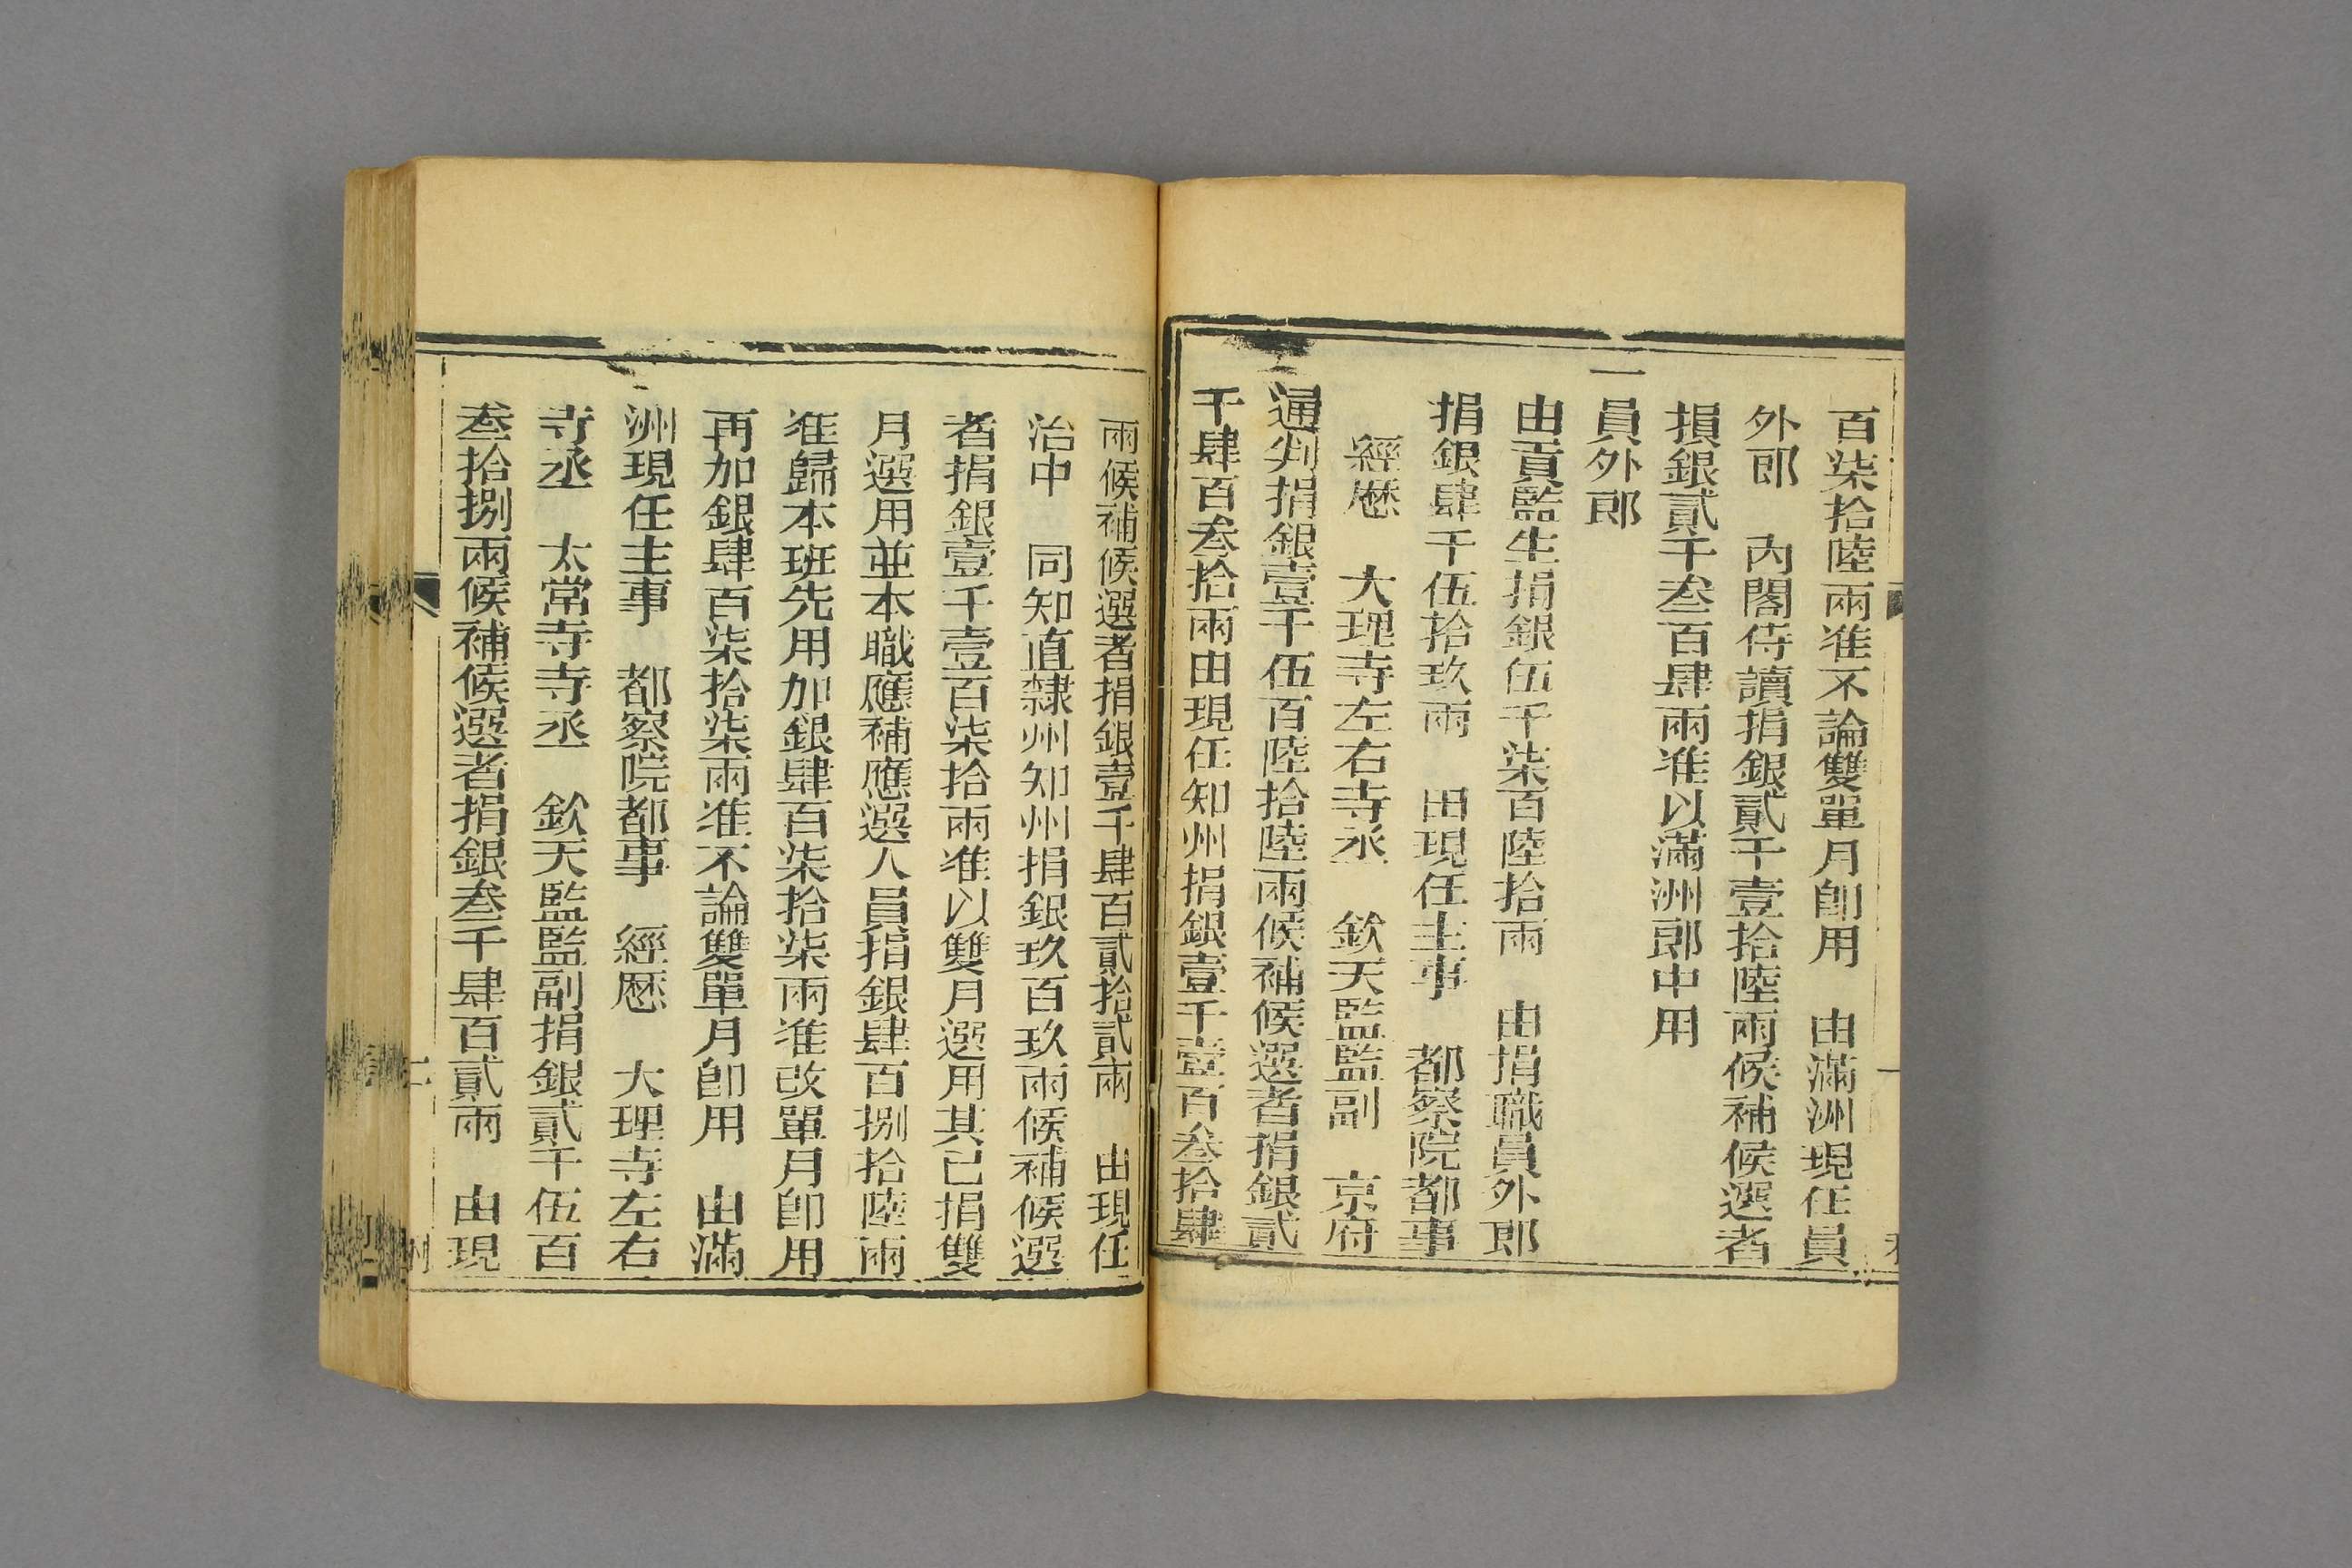 百柒拾陸兩准不論雙單月卽用　由滿洲現任員
外郎　內閣侍讀捐銀貳千壹拾陸兩候補候選者
損銀貳千叁百肆兩准以滿洲郎中用
一員外郎
由貢監生捐銀伍千柒百陸拾兩　由捐職員外郎
捐銀肆千伍拾玖兩　由現任主事　都察院都事
經歷　大理寺左右寺丞　欽天監監副　京府
通判捐銀壹千伍百陸拾陸兩候補候選者捐銀貳
千肆百叁拾兩由現任知州捐銀壹千壹百叁拾肆
兩候補候選者捐銀壹千肆百貳拾貳兩　由現任
治中　同知直隸州知州捐銀玖百玖兩候補候選
者捐銀壹千壹百柒拾兩准以雙月選用其已捐雙
月選用並本職應補應選人員捐銀肆百捌拾陸兩
准歸本班先用加銀肆百柒拾柒兩准改單月卽用
再加銀肆百柒拾柒兩准不論雙單月卽用　由滿
洲現任主事　都察院都事　經歷　大理寺左右
寺丞　太常寺寺丞　欽天監監副捐銀貳千伍百
叁拾捌兩候補候選者捐銀叁千肆百貳兩　由現